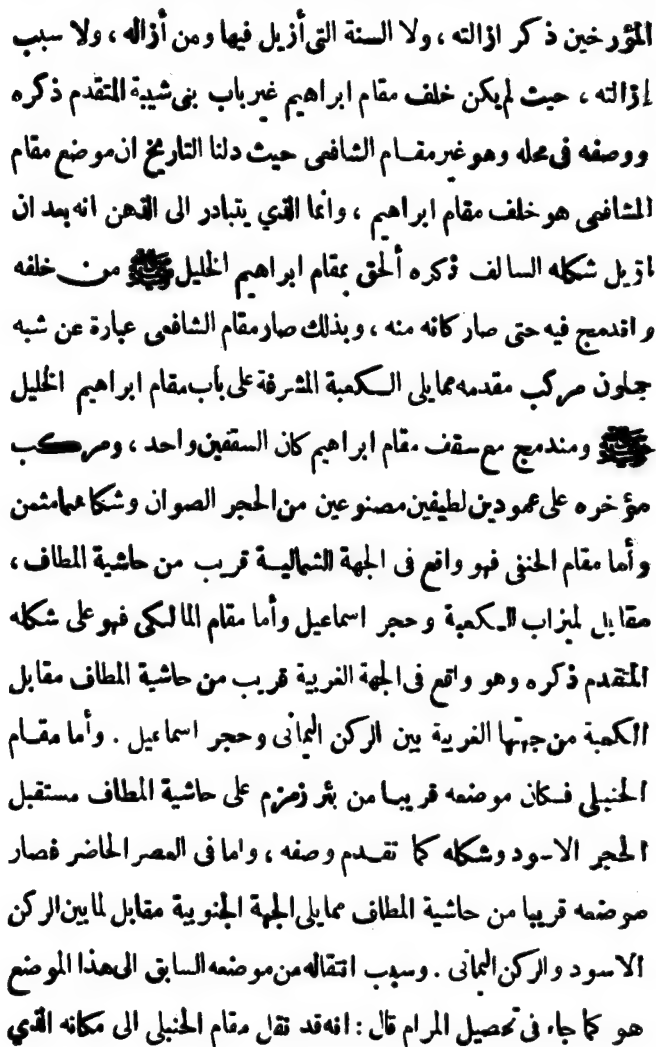 المؤرخين ذكر ازالته ، ولا السنة التي أزيل فيها ومن أزاله ، ولا سبب
إزالته ، حيث لم يكن خلف مقام ابراهيم غير باب بني شيبة المتقدم ذكره
ووصفه في محله وهو غير مقام الشافعي حيث دلنا التاريخ ان موضع مقام
الشافعي هو خلف مقام ابراهيم ، وانما الذي يتبادر الى الذهن انه بعد ان
ازيل شكله السالف ذكره ألحق بمقام ابراهيم الخليل ﷺ من خلفه
واندمج فيه حتى صار كانه منه ، وبذلك صار مقام الشافعي عبارة عن شبه
جملون مركب مقدمه مما يلي الكعبة المشرفة على باب مقام ابراهيم الخليل
ﷺ ومندمج مع سقف مقام ابراهيم كان السقفين واحد ، ومركب
مؤخره على عمودين لطيفين مصنوعين من الحجر الصوان وشكلهما مثمن
وأما مقام الحنفي فهو واقع في الجهة الشمالية قريب من حاشية المطاف ،
مقابل لميزاب الكعبة وحجر اسماعيل وأما مقام المالكي فهو على شكله
المتقدم ذكره وهو واقع في الجهة الغربية قريب من حاشية المطاف مقابل
الكعبة من جهتها الغربية بين الركن اليماني وحجر اسماعيل . وأما مقام
الحنبلي فكان موضعه قريبا من بئر زمزم على حاشية المطاف مستقبل
الحجر الاسود وشكله كما تقدم وصفه ، واما في العصر الحاضر فصار
موضعه قريبا من حاشية المطاف مما يلي الجهة الجنوبية مقابل لما بين الركن
الاسود والركن اليماني . وسبب انتقاله من موضعه السابق الى هذا الموضع
هو كما جاء في تحصيل المرام قال : انه قد نقل مقام الحنبلي الى مكانه الذي